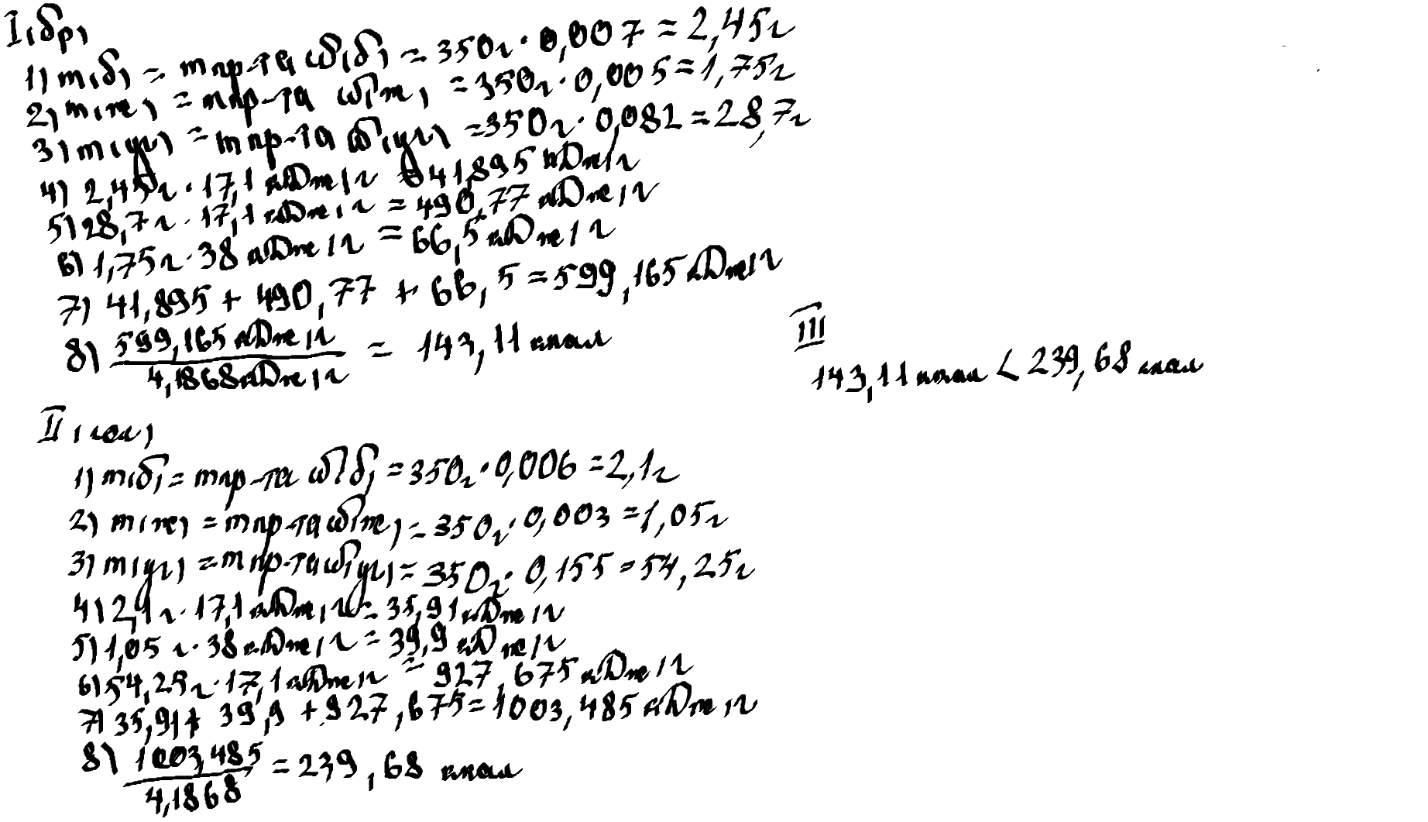 I (бр)
1) m(б) = mпр-та ω(б) = 350г · 0,007 = 2,45г
2) m(ж) = mпр-та ω(ж) = 350г · 0,005 = 1,75г
3) m(уг) = mпр-та ω(уг) = 350г · 0,082 = 28,7г
4) 2,45г · 17,1 кДж/г = 41,895 кДж/г
5) 28,7г · 17,1 кДж/г = 490,77 кДж/г
6) 1,75г · 38 кДж/г = 66,5 кДж/г
7) 41,895 + 490,77 + 66,5 = 599,165 кДж/г
8) 599,165 кДж/г / 4,1868 кДж/г = 143,11 ккал
III
143,11 ккал < 239,68 ккал
II (кол)
1) m(б) = mпр-та ω(б) = 350г · 0,006 = 2,1г
2) m(ж) = mпр-та ω(ж) = 350г · 0,003 = 1,05г
3) m(уг) = mпр-та ω(уг) = 350г · 0,155 = 54,25г
4) 2,1г · 17,1 кДж/г = 35,91 кДж/г
5) 1,05г · 38 кДж/г = 39,9 кДж/г
6) 54,25г · 17,1 кДж/г = 927,675 кДж/г
7) 35,91 + 39,9 + 927,675 = 1003,485 кДж/г
8) 1003,485 / 4,1868 = 239,68 ккал